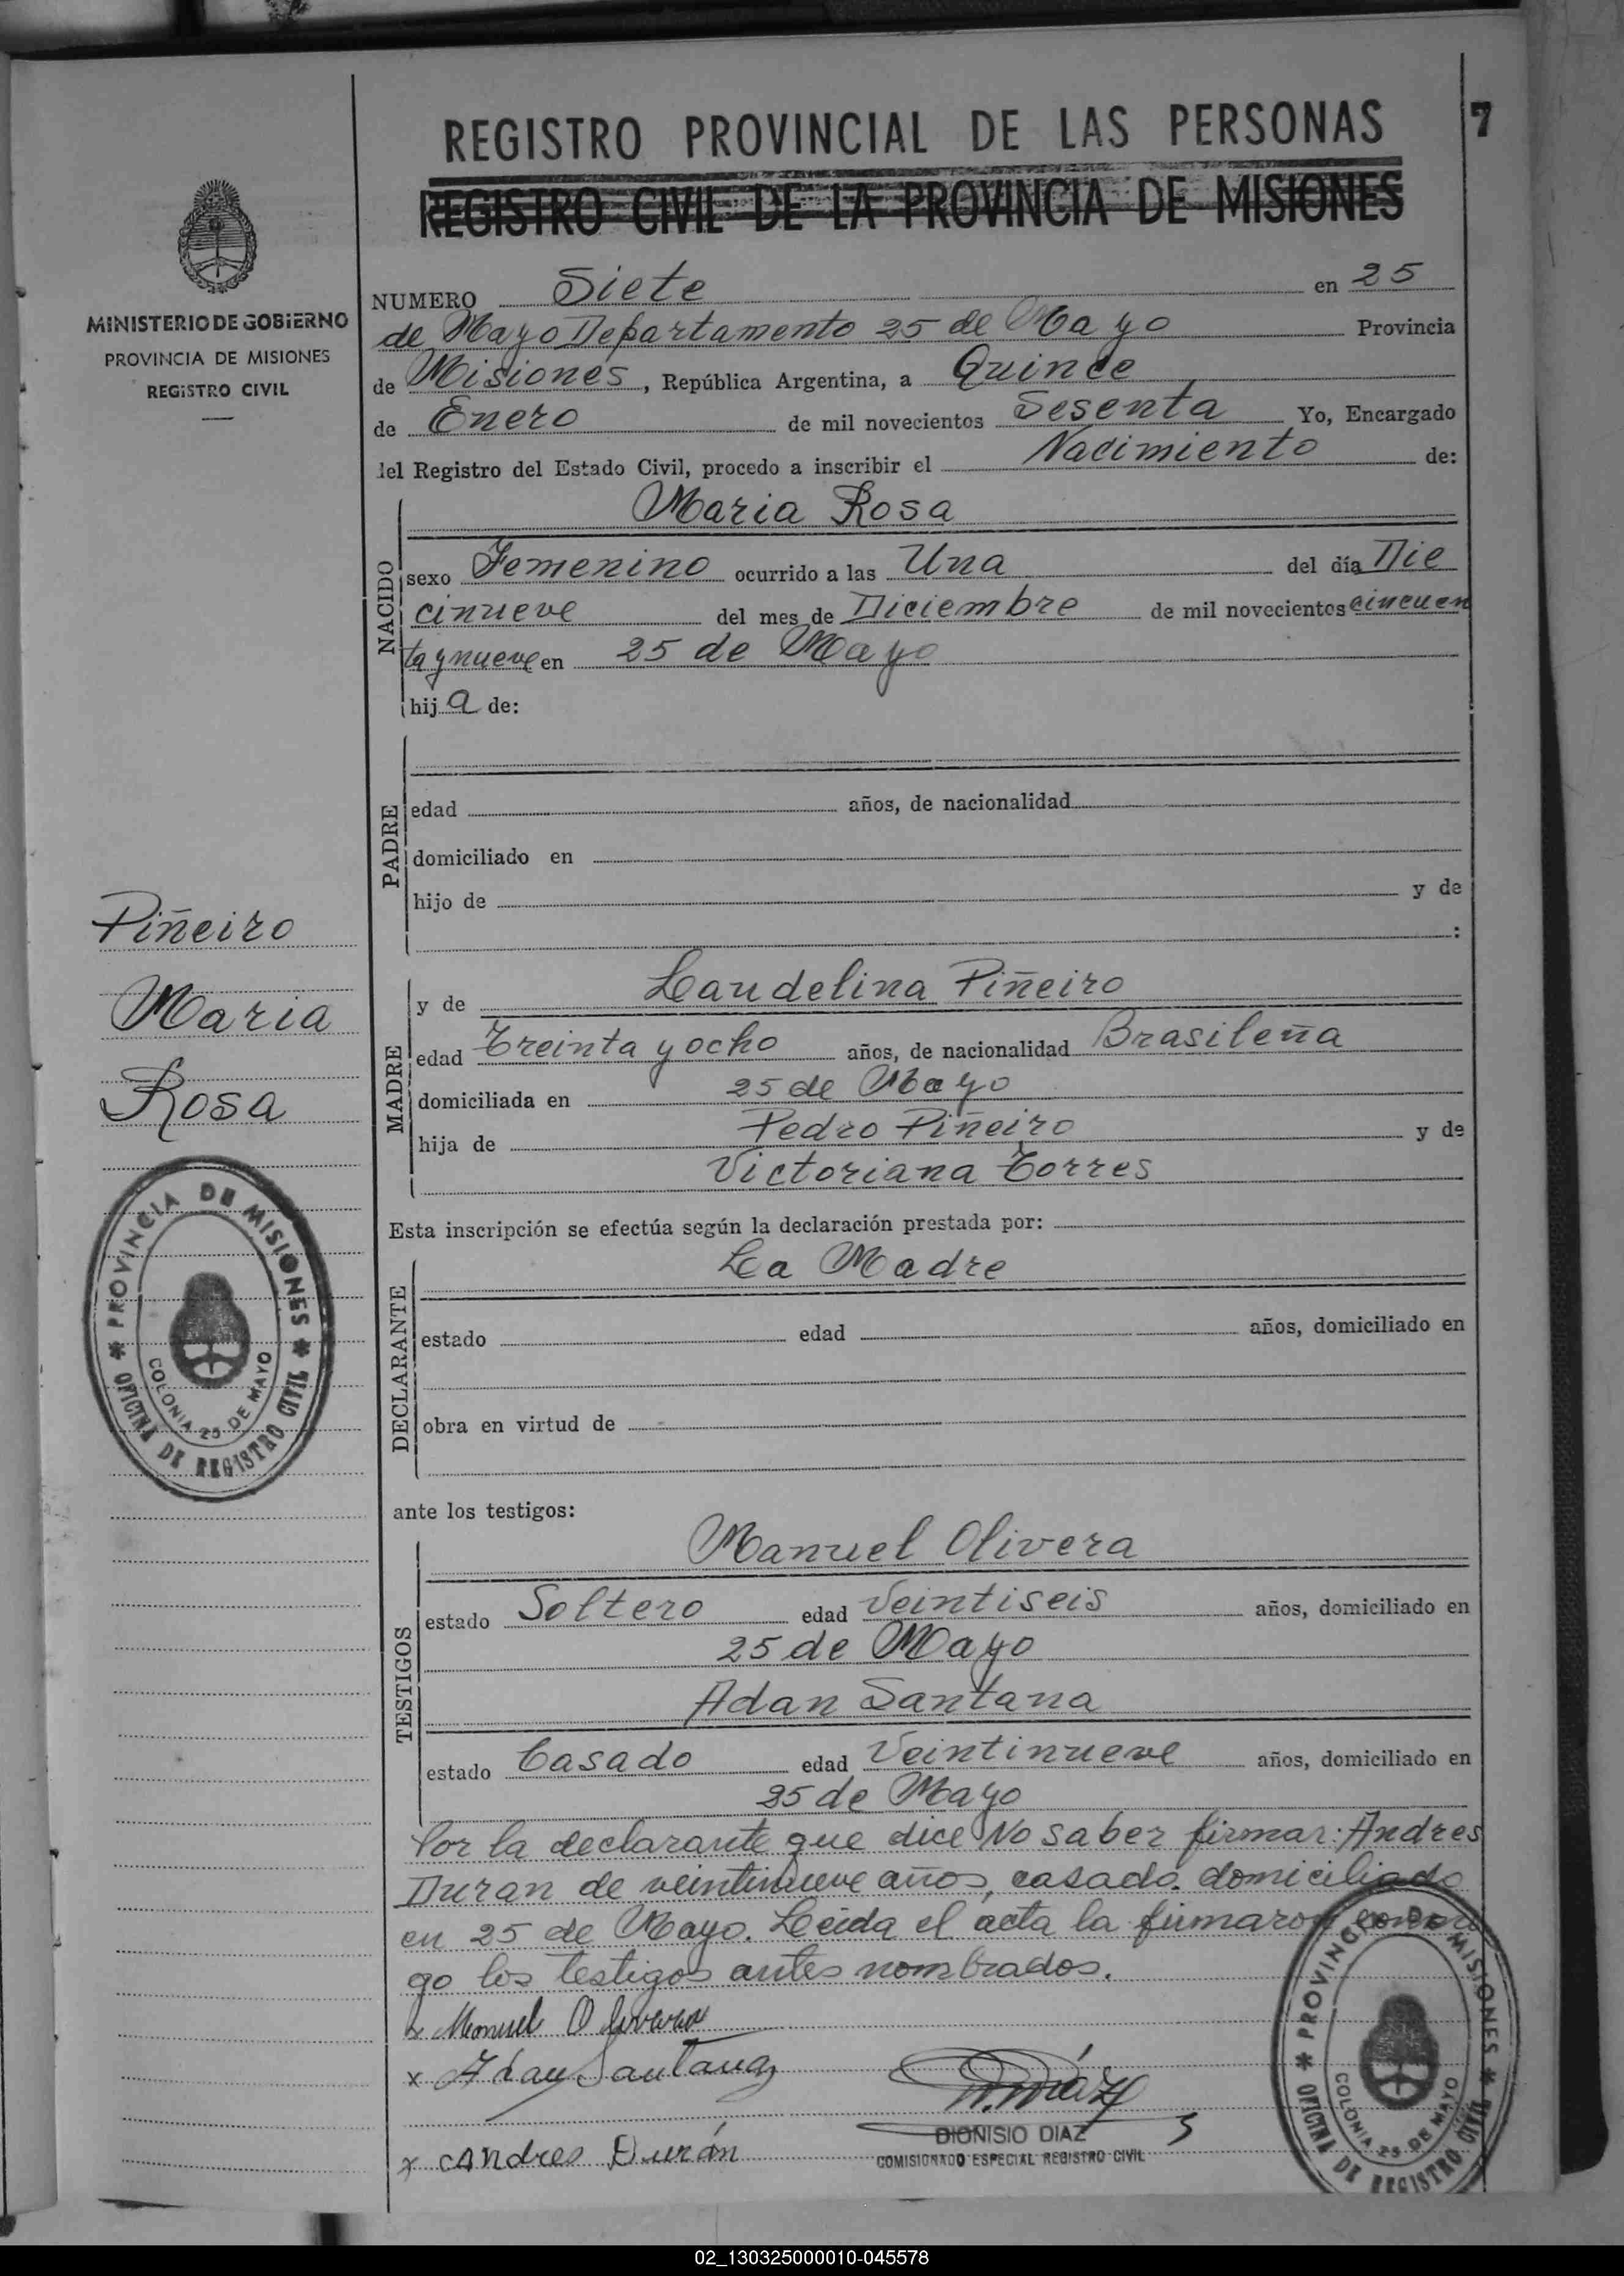 REGISTRO PROVINCIAL DE LAS PERSONAS
7
REGISTRO CIVIL DE LA PROVINCIA DE MISIONES
MINISTERIO DE GOBIERNO
PROVINCIA DE MISIONES
REGISTRO CIVIL
NUMERO Siete en 25
de Mayo Departamento 25 de Mayo Provincia
de Misiones, República Argentina, a Quince
de Enero de mil novecientos Sesenta Yo, Encargado
del Registro del Estado Civil, procedo a inscribir el Nacimiento de:
NACIDO
Maria Rosa
sexo Femenino ocurrido a las Una del día Die
cinueve del mes de Diciembre de mil novecientos cincuen
ta y nueve en 25 de Mayo
hija de:
PADRE
edad años, de nacionalidad
domiciliado en
hijo de y de
:
Piñeiro
Maria
Rosa
MADRE
y de Laudelina Piñeiro
edad Treinta y ocho años, de nacionalidad Brasileña
domiciliada en 25 de Mayo
hija de Pedro Piñeiro y de
Victoriana Torres
Esta inscripción se efectúa según la declaración prestada por:
DECLARANTE
La Madre
estado edad años, domiciliado en
obra en virtud de
PROVINCIA DE MISIONES
COLONIA 25 DE MAYO
OFICINA DE REGISTRO CIVIL
ante los testigos:
TESTIGOS
Manuel Olivera
estado Soltero edad Veintiseis años, domiciliado en
25 de Mayo
Adan Santana
estado Casado edad Veintinueve años, domiciliado en
25 de Mayo
Por la declarante que dice No saber firmar: Andres
Duran de veintinueve años, casado, domiciliado
en 25 de Mayo. Leida el acta la firmaron conmi
go los testigos antes nombrados.
x Manuel Olivera
x Adan Santana
D. Díaz
x Andres Durán
DIONISIO DIAZ
COMISIONADO ESPECIAL REGISTRO CIVIL
PROVINCIA DE MISIONES
COLONIA 25 DE MAYO
OFICINA DE REGISTRO CIVIL
02_130325000010-045578